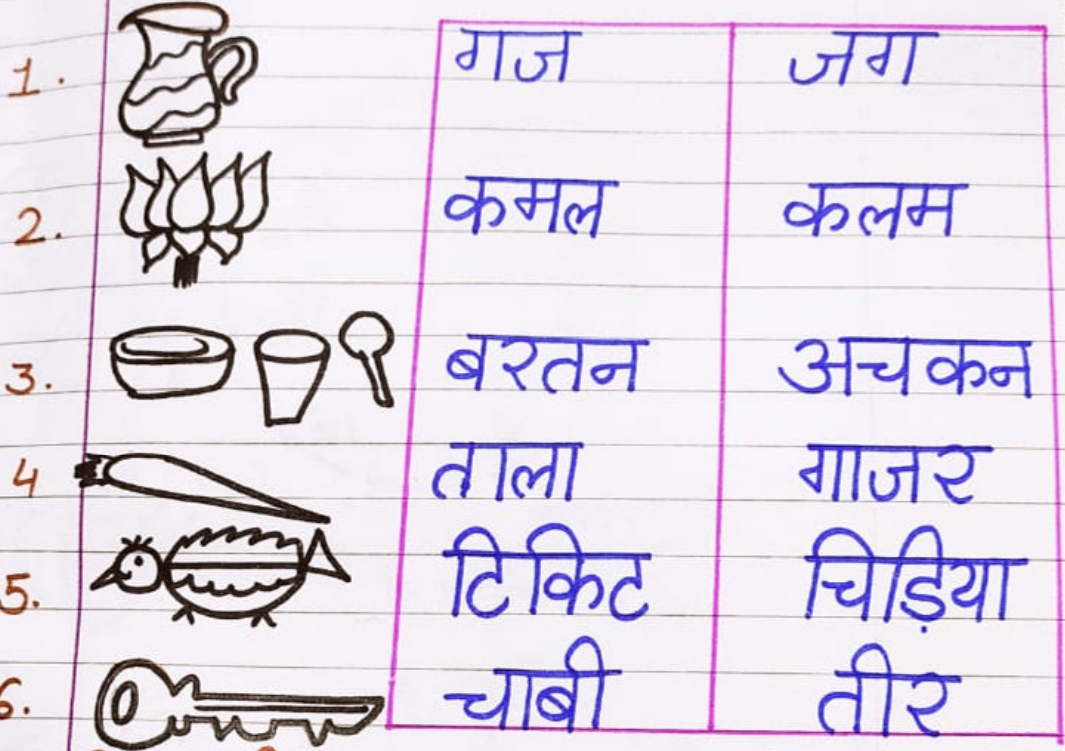 1. गज जग
2. कमल कलम
3. बरतन अचकन
4 ताला गाजर
5. टिकिट चिड़िया
6. चाबी तीर